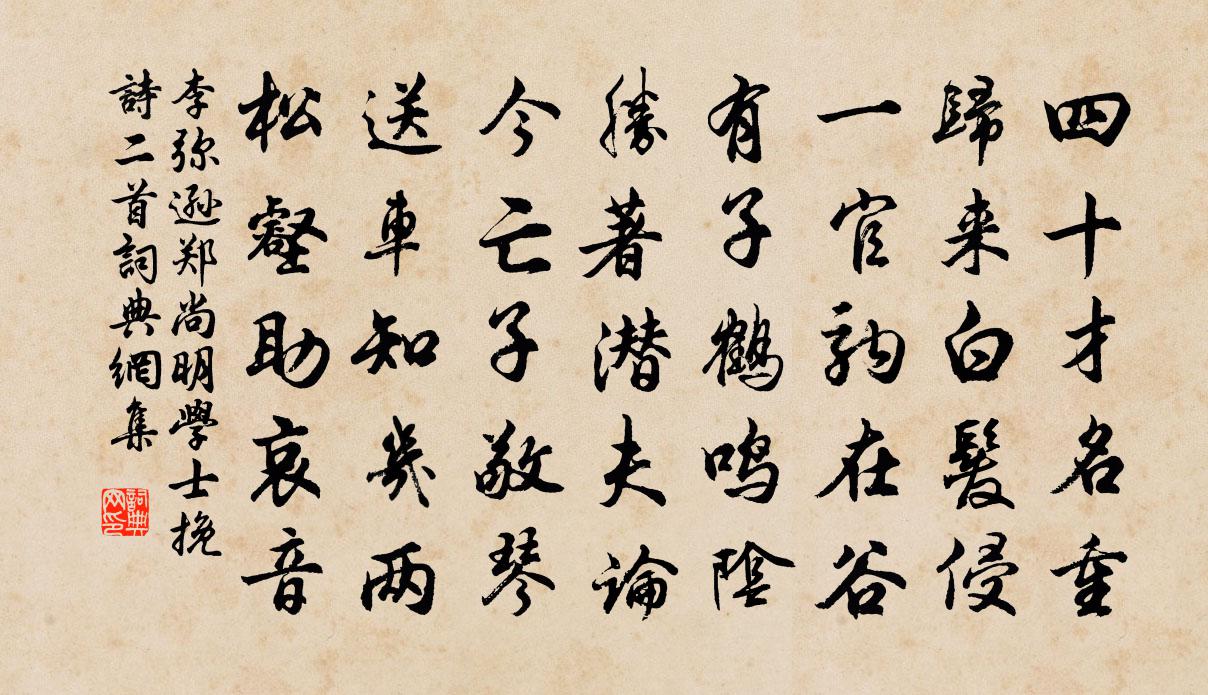 四十才名重
歸来白髮侵
一官駒在谷
有子鶴鳴陰
勝著潜夫論
今亡子敬琴
送車知幾两
松壑助哀音
李弥遜郑尚明學士挽
詩二首詞典網集
詞典网印